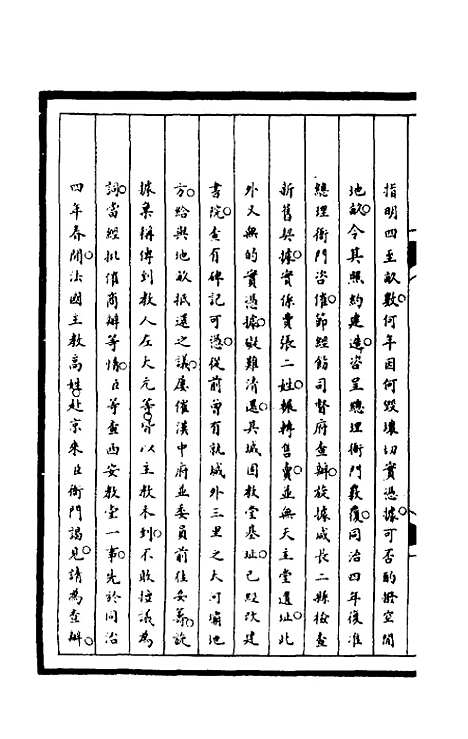 指明四至畝數何年因何毀壞切實憑據可否酌撥空閒
地畝令其照約建造咨呈總理衙門覈復同治四年復准
總理衙門咨催節經飭司督府查辦旋據咸長二縣檢查
新舊契據實係賈張二姓輾轉售賣並無天主堂遺址此
外又無的實憑據礙難清還吳城固教堂基址已經改建
書院查有碑記可憑從前曾有就城外三里之大河壩地
方給與地畝抵還之議屢催漢中府並委員前往妥籌旋
據稟稱傳到教人左大元等皆以主教未到不敢擅議為
詞當經批催商辦等情臣等查西安教堂一事先於同治
四年春間法國主教高姓赴京來臣衙門謁見請為查辦